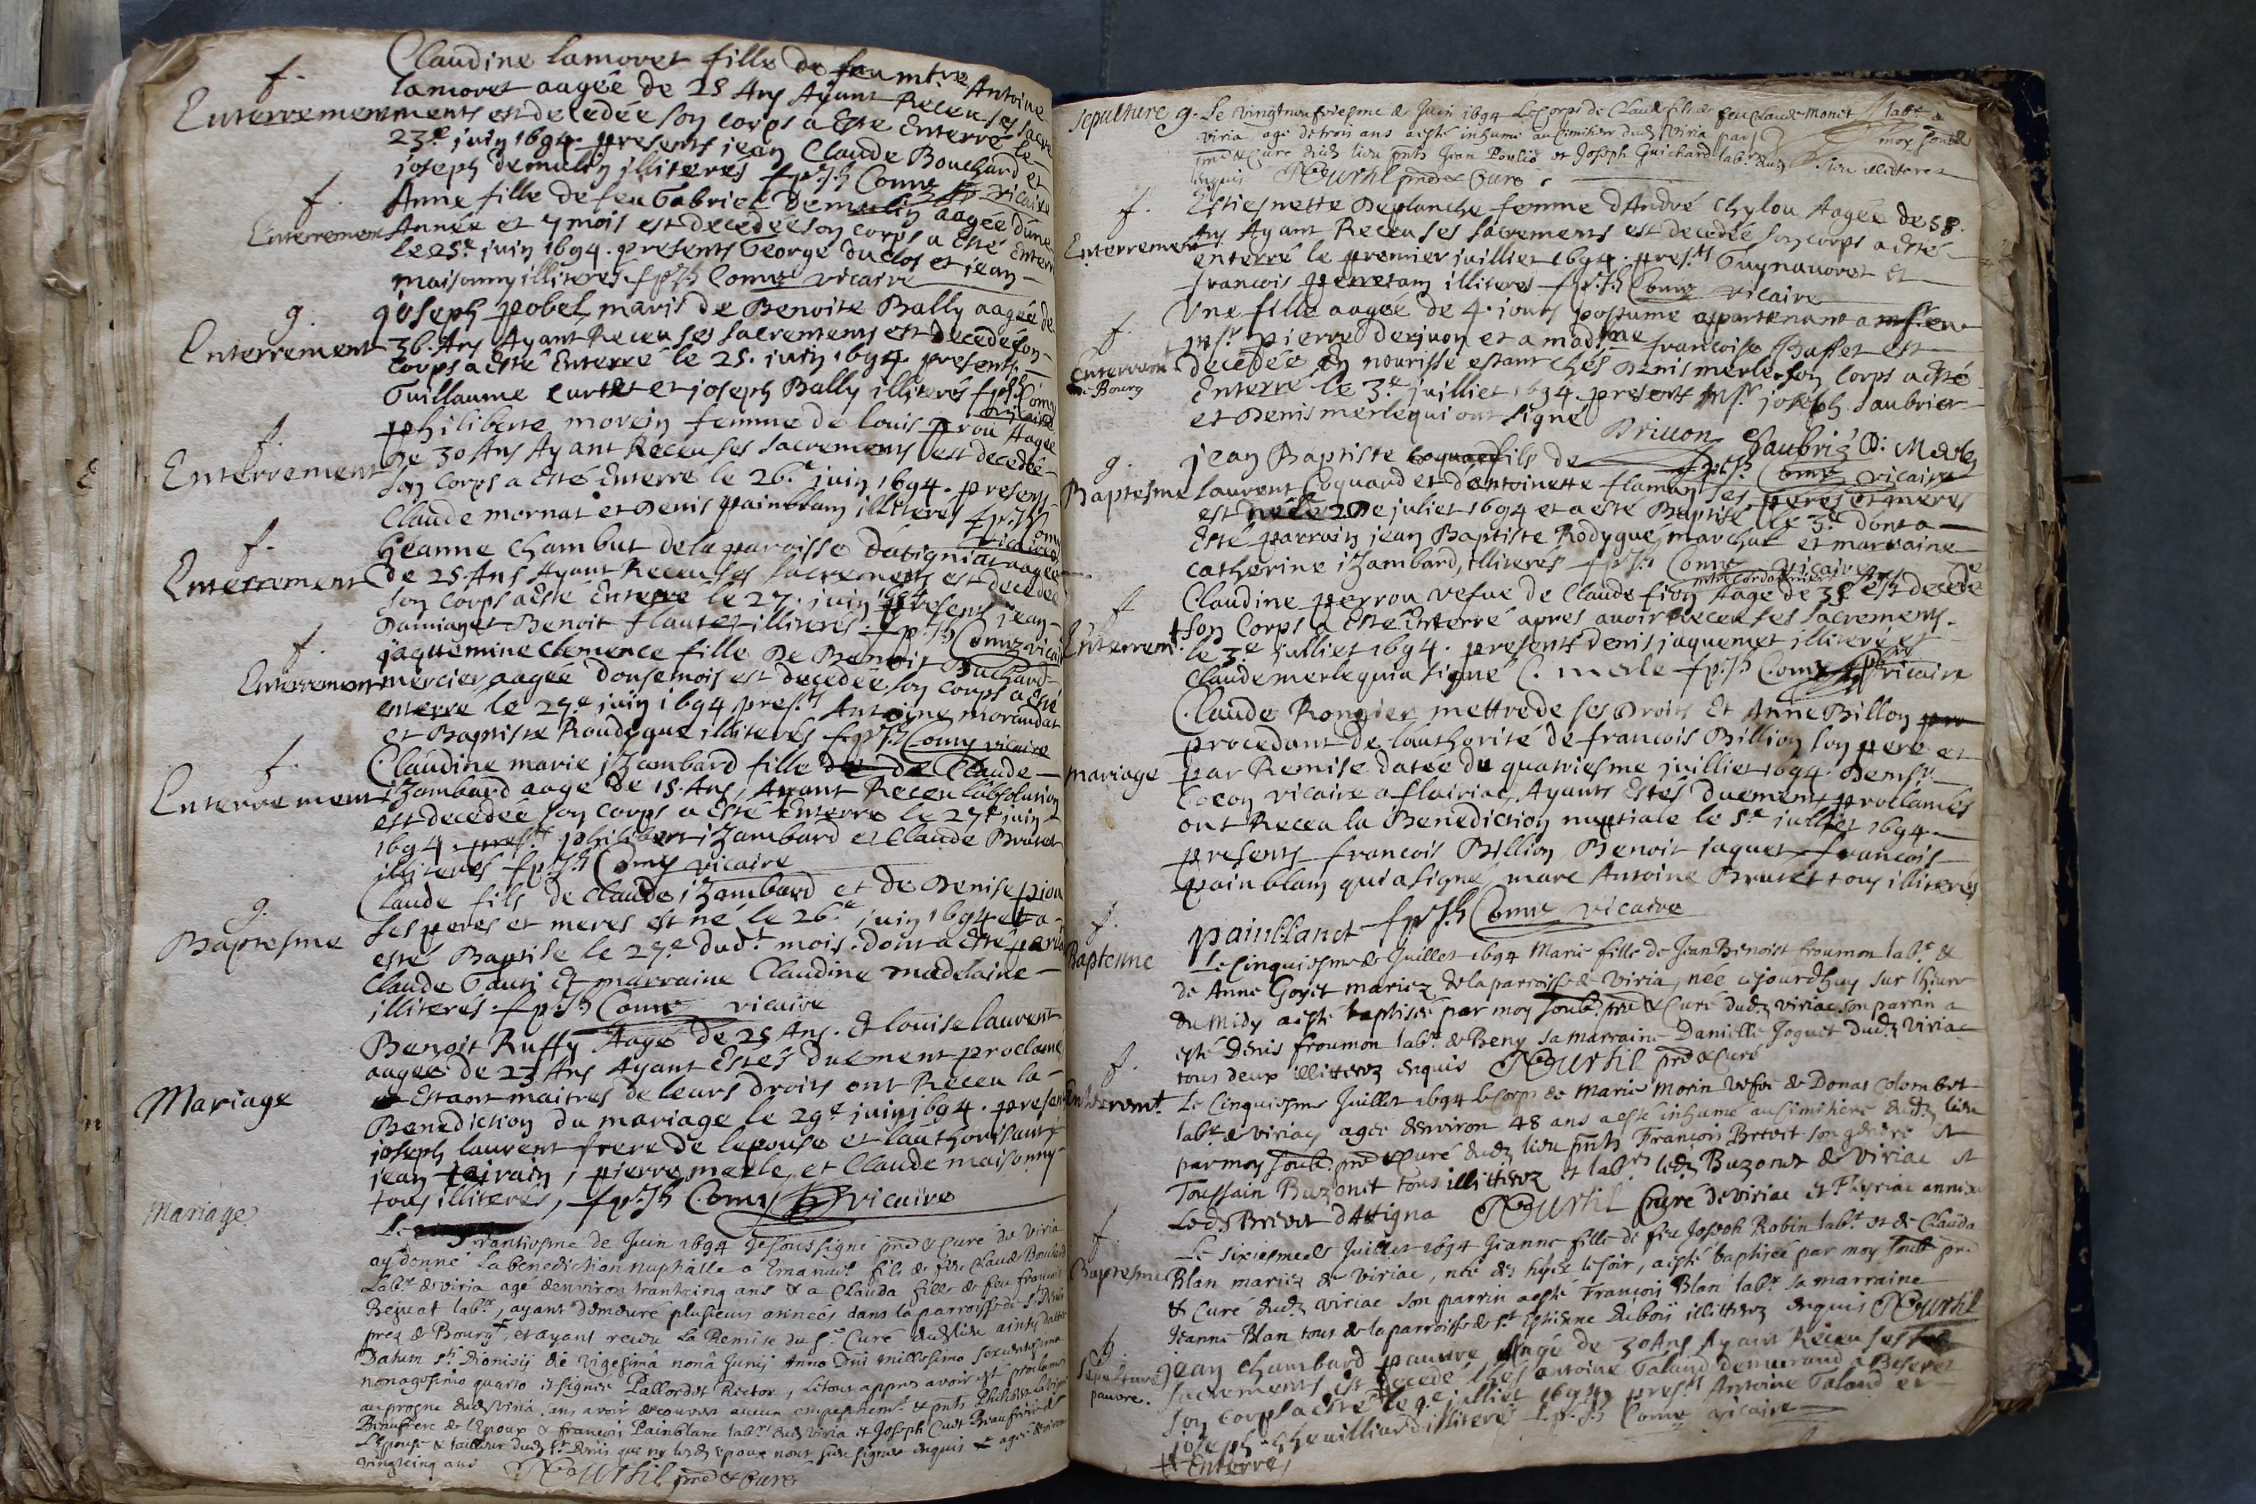 f.
Claudine lamoret fille de feu mtre Antoine
Enterrement
lamoret aagée de 25 Ans Ayant Receu ses sacre
ments est decedée son corps a Esté Enterré le
23e juin 1694. presents jean Claude Bouchard et
joseph demulin illiterés f. p. Jh Come vicaire
f.
Enterrement
Anne fille de feu Gabriel demulin aagée dune
Année et 7 mois est decedée son corps a Esté Enterré
le 25e juin 1694. presents George duclos et jean
maisonny illiterés f. p. Jh Come vicaire
g.
Enterrement
joseph pobel maris de Benoite Bally aagée de
36. Ans Ayant Receu ses sacrements est decedé son
corps a Esté Enterré le 25. juin 1694. presents
Guillaume curtet et joseph Bally illiterés f. p. Jh Come
vicaire
f.
Enterrement
philiberte morein femme de louis prou Aagée
de 30 Ans Ayant Receu ses sacrements est decedée
son Corps a Esté Enterre le 26.e juin 1694. presents
Claude mornat et Denis painblan illiteres f. p. Jh Come
vicaire
f.
Enterrement
Jeanne Chambut de la paroisse datignia aagée
de 25. Ans Ayant Receu ses sacrements est decedée
son corps a Esté Enterre le 27. juin 1694 presents jean
Damian et Benoit flautet illiteres. f. p. Jh Come vicaire
f.
Enterrement
jaquemine Clemence fille De Benoit Buchard
mercier aagée donse mois est decedée son corps a Esté
enterre le 27e juin 1694 prests Antoine morandat
et Baptiste Roudegue illiterés f. p. Jh Come vicaire
f.
Enterrement
Claudine marie jZambard fille de Claude
jZambard aagé de 15. Ans, Ayant Receu labsolution
est decedée son corps a Esté Enterre le 27e juin
1694. prests philibert jZambard et Claude Brunet
illiterés f. p. Jh Come vicaire
g.
Baptesme
Claude fils de Claude jZambard et de Denise pion
ses peres et meres est né le 26.e juin 1694 et a
estés Baptise le 27.e dudt mois. dont a Esté parrain
Claude Tauri Et marraine Claudine madelaine
illiterés. f. p. Jh Come vicaire
Mariage
Benoit Ruffy Aagé de 25 Ans. Et louise laurent
aagée de 23 Ans Ayant Estés duement proclamés
Estant maitres de leurs droits ont Receu la
Benediction du mariage le 29e juin 1694. presents
joseph laurent frere de lepouse et lauthorisant
jean terrain, pierre merle, et Claude maisonny
tous illiterés, f. p. Jh Come vicaire
Mariage
Le Trantiesme de Juin 1694 Je soussigné pre & curé de Viria
ay donné La benediction nuptialle a Emanuel fils de feu Claude Bouchard
Labr de viria agé denviron trantecinq ans & a Clauda fille de feu françois
Bejuat labr, ayant demeuré plusieurs années dans la parroisse de St Denis
prez de Bourg +, et ayant receu La Remise du Sr Curé dudt lieu ainsy dattée
Datum sti Dionisij die vigesimâ nonâ Junij Anno Dni millesimo sexcentesimo
nonagesimo quarto et signée Pallordet Rector, letout appres avoir est proclamés
au progne dudt viria, sans avoir decouvert aucun empeschemt & pnts Philibert
Beaufrere de l'Epoux & françois Painblanc labrs dudt viria et Joseph Curt Beaufrere de
L'Epouse & tailleur dudt St Denis que ny lesdt Epoux nont sceu signer enquis + agée denviron
vingtcinq ans NGourtil pre & Curé
sepulture g.
Le vingtneufviesme de Juin 1694 Le Corps de Claude fils de feu Claude Monet labr de
viria agé de trois ans aesté inhumé au cimitier dudt Viria par moy soubné
pre & Cure dudt lieu pnts Jean Poulis et Joseph Guichard labrs dudt lieu illitterez
enquis NGourtil pre & Curé
f.
Enterrement
Estiennette Deplanche femme dAndré Chylou Aagée de 58.
Ans Ayant Receu ses sacrements est decedée son corps a esté
enterré le premier juilliet 1694. prests Guynauoret Et
francois perretan illiteres f. p. Jh Come vicaire
f.
Enterremt
de Bourg
Une fille aagée de 4. jours postume appartenant a feu
msr pierre derjuon et a madme francoise Buffet est
decedée En nourisse estant ches Denis merle son corps a esté
Enterré le 3e juilliet 1694. presents msr joseph Saubrier
et Denis merle qui ont signé
Drillon Saubrié D: Merle
f. p. Jh Come vicaire
g.
Baptesme
jean Baptiste fils de
laurent Coquard et dantoinette flaman ses peres et meres
est né le 2De juliet 1694 et a esté Baptisé le 3e dont a
Esté parrain jean Baptiste Rodegue marchat et marraine
Catherine jZambard, illiterés f. p. Jh Come vicaire
f.
Enterremt.
Claudine perrou vefue de Claude fion mtre cordonnier Aagé de 35 est decedée
son Corps a Esté Enterré apres auoir Receu ses sacrements.
le 3e juilliet 1694. presents denis jaquemet illiteré et
Claude merle qui a signé C. merle f. p. Jh Come vicaire
Mariage
Claude Rongier mettre de ses Droits Et Anne Billon
procedant de lauthorité de francois Billion son pere et
par Remise datée du quatriesme juilliet 1694. De msr
Cocon vicaire a flairiac, Ayants Estés duement proclamés
ont Receu la Benediction nuptiale le 5.e julliet 1694.
presents francois Billion, Benoit jaquet francois
painblan qui a signé, marc Antoine Brunet tous illiterés
painblanct f. p. Jh Come vicaire
f.
Baptenne
Le Cinquiesme de Juillet 1694 Marie fille de Jean Benoist froumon labr &
de Anne Goyet mariez de la parroisse de Viria, née aujourdhuy sur lheure
du Midy aesté baptisée par moy soubné pre & Curé dudt viriac son parrin a
esté Denis froumon labr de Beny sa marraine Danielle Joguet dudt viriac
tous deux illitterez enquis NGourtil pre & Curé
f.
Enterremt.
Le Cinquiesme Juillet 1694 le Corps de Marie Morin vefve de Donas Colombet
labr de viriac agée denviron 48 ans aesté inhumé au cimitiere dudt lieu
par moy soubné pre & Curé dudt lieu pnts François Brevet son gendre et
Toussain Buzonet tous illitterez et labrs ledt Buzonet de viriac et
Ledt Brevet dAttigna NGourtil Curé de viriac et Fleyriac annixe
f.
Baptesme
Le sixiesme de Juillet 1694 Jeanne fille de feu Joseph Rabin labr et de Clauda
Blan mariez de Viriac, née des hyer lesoir, aesté baptisée par moy soubné pre
& Curé dudt viriac son parrin aesté François Blan labr sa marraine
Jeanne Blan tous de la parroisse de St Estienne dubois illitterez enquis NGourtil
g.
Sepulture
pauvre.
jean Chambard pauvre Aagé de 30 Ans Ayant Receu ses
sacrements est decedé chés antoine Taland demeurand a
son corps a esté + le 9.e juilliet 1694. prests Antoine Taland et
joseph Cheuilliard illiteré f. p. Jh Come vicaire
+ Enterré